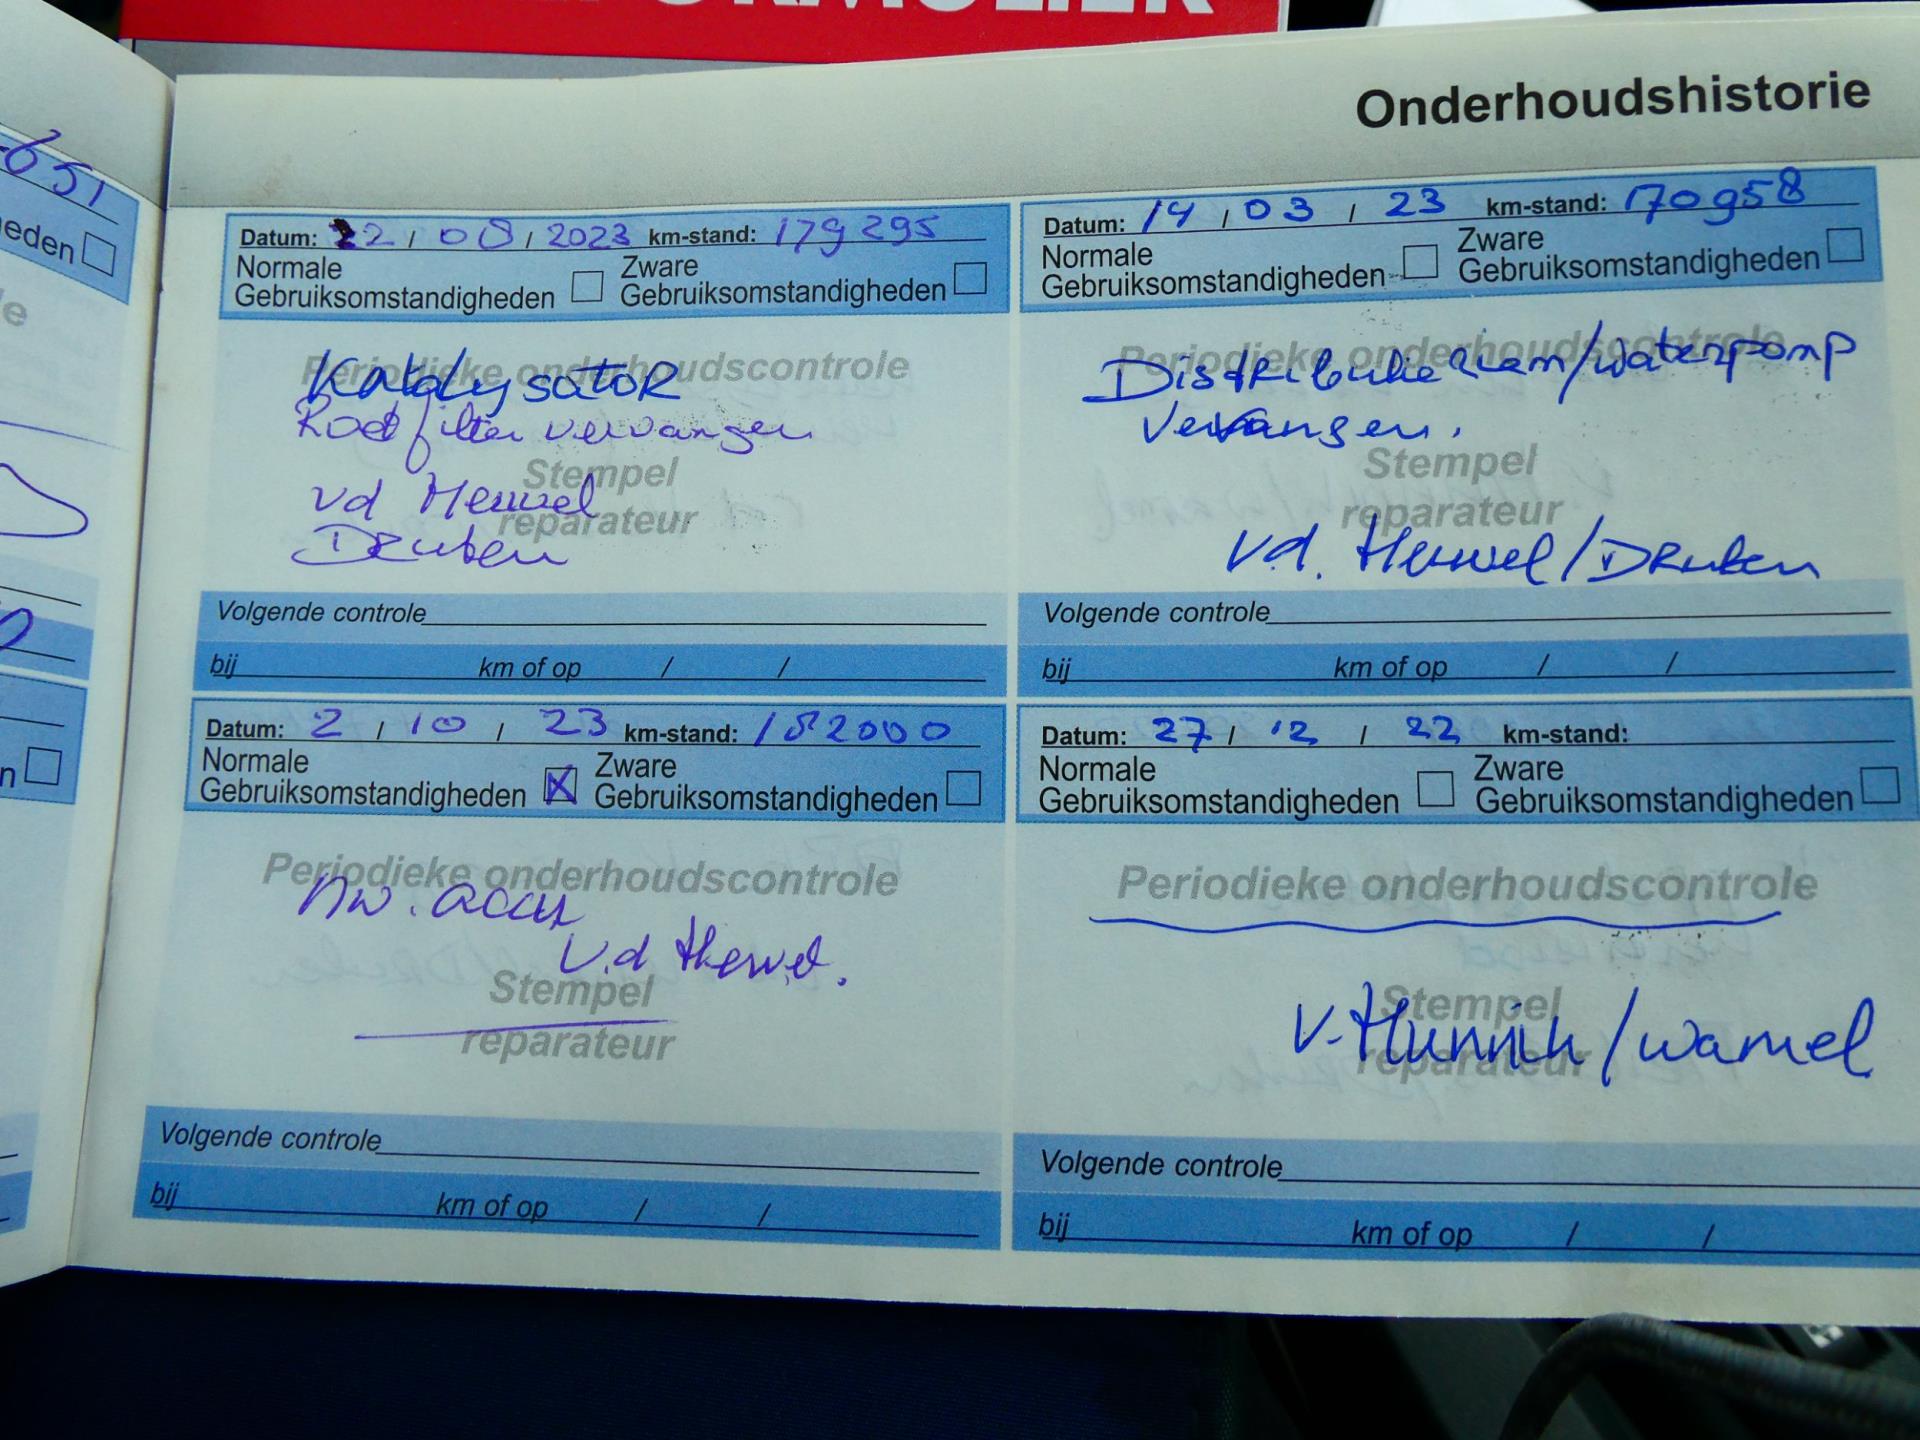 Onderhoudshistorie
651
Datum: 22 / 08 / 2023 km-stand: 179295
Normale Gebruiksomstandigheden
Zware Gebruiksomstandigheden
Periodieke onderhoudscontrole
Katalysator
Roetfilter vervangen
Stempel
reparateur
vd Heuvel
Druten
Volgende controle
bij km of op / /
Datum: 14 / 03 / 23 km-stand: 170958
Normale Gebruiksomstandigheden
Zware Gebruiksomstandigheden
Periodieke onderhoudscontrole
Distributieriem/waterpomp
Vervangen.
Stempel
reparateur
v.d. Heuvel/Druten
Volgende controle
bij km of op / /
Datum: 2 / 10 / 23 km-stand: 182000
Normale Gebruiksomstandigheden X
Zware Gebruiksomstandigheden
Periodieke onderhoudscontrole
nw. accu
v.d Heuvel.
Stempel
reparateur
Volgende controle
bij km of op / /
Datum: 27 / 12 / 22 km-stand:
Normale Gebruiksomstandigheden
Zware Gebruiksomstandigheden
Periodieke onderhoudscontrole
Stempel
reparateur
/wamel
Volgende controle
bij km of op / /